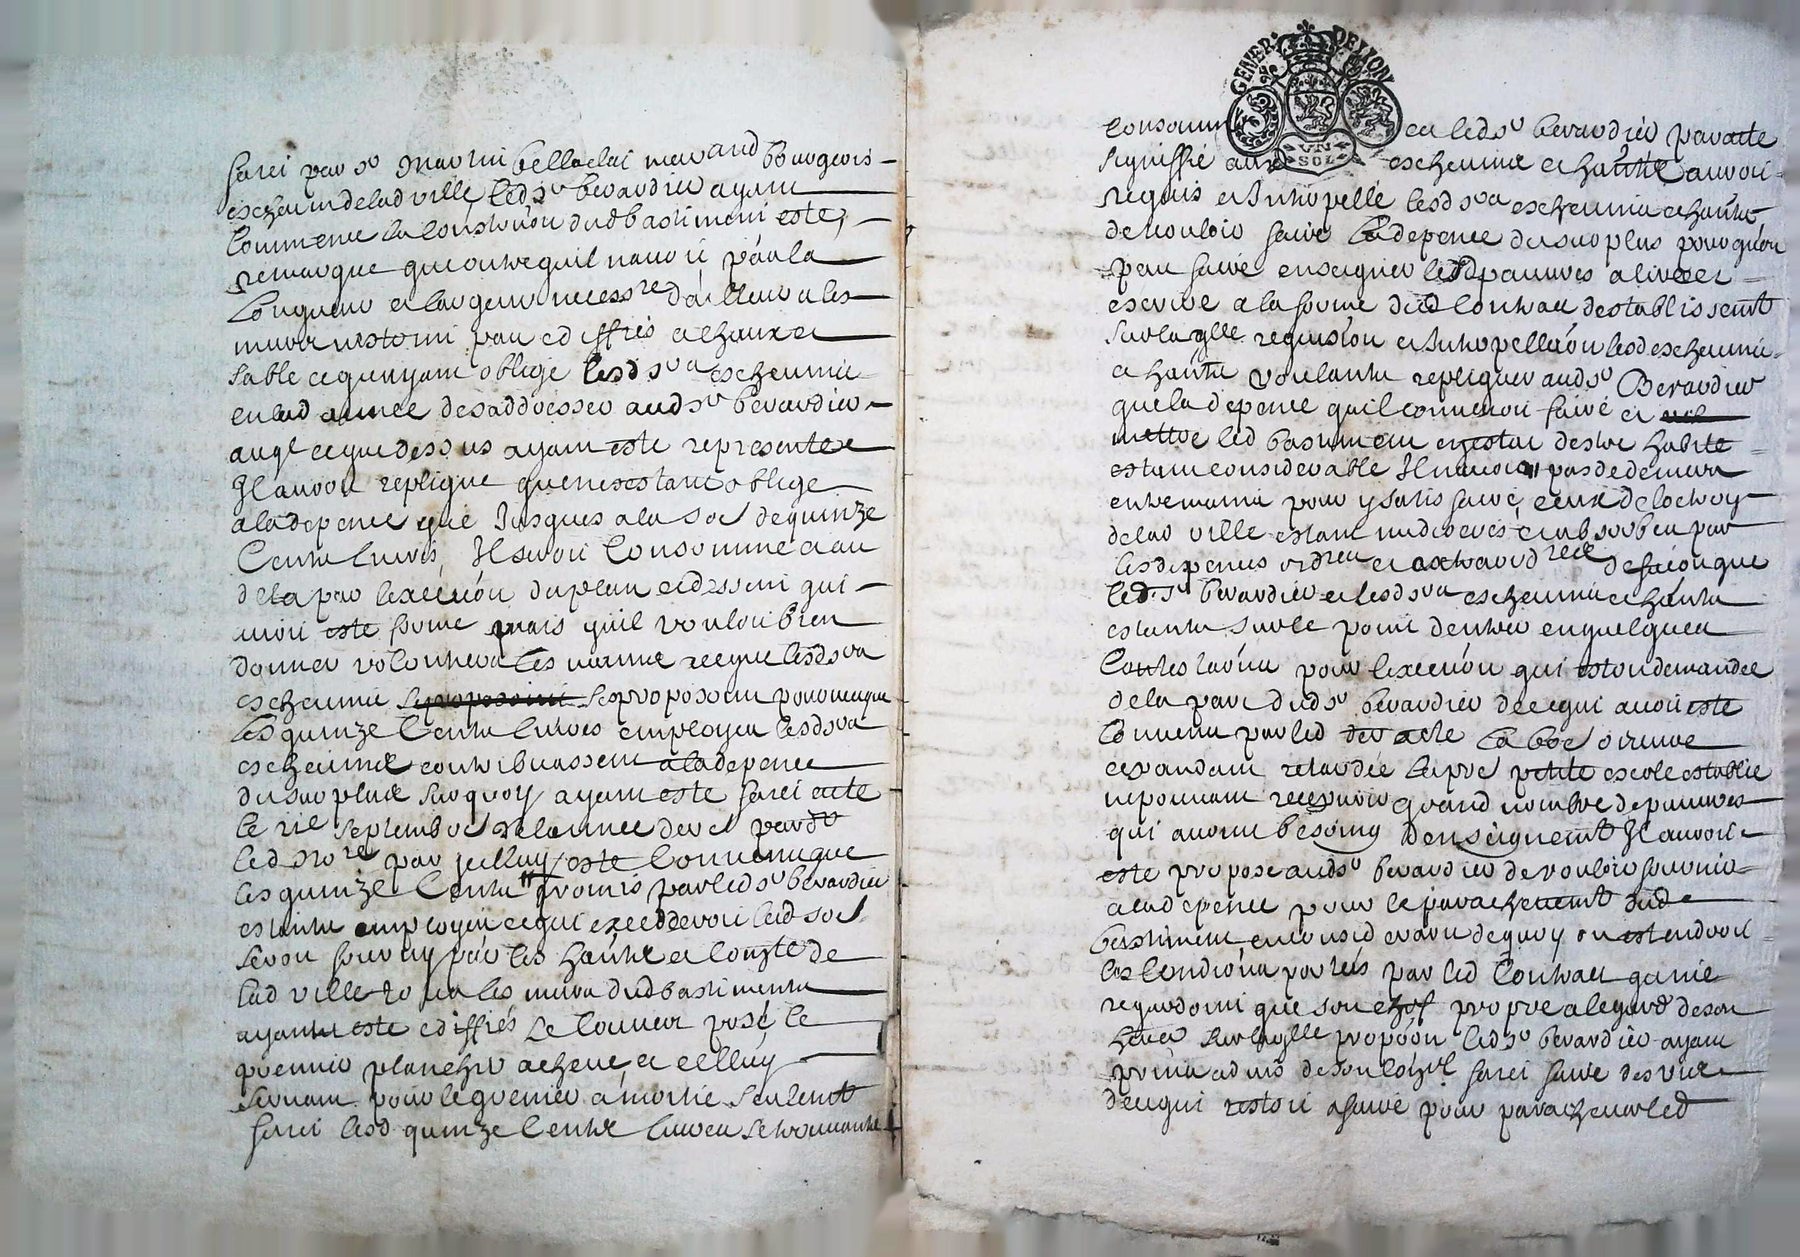 faict par sr
eschevin de lad ville led sr berardier ayant
commence la constrution dud bastiment este
remarque que outre quil navoit pas la
longueur et largeur necessre dailleurs les
murs nestoint pas ediffiés a chaux et
sable ce quy ayant oblige lesd srs eschevins
en lad annee de sadresser aud sr berardier
auql ce que dessus ayant este represente
Il auroit replique que nestant oblige
a la depence que Jusques a la soe de quinze
Cents livres, Il seroit consomme et au
dela par lexecution du plan et dessein qui
avoit este forme mais quil vouloit bien
donner volontiers les
eschevins se proposoint
les quinze Cents livres employes lesd srs
eschevins contribuassent a la depence
du surplus surquoy ayant este faict acte
le septembre de lannee par
led nore par
les quinze Cents promis par led sr berardier
estants employes ce qui excedderoit lad soe
seroit fourny par les habitants et compte de
lad ville et les murs dud bastiment
ayants este ediffiés le couvert posé le
premier plancher acheve et celluy
servant pour le grenier a moitie seulemt
faict lesd quinze Cents livres se trouvants
GENER DE LYON
UN SOL
consom et led sr berardier par acte
signiffié aux eschevins et habitants auroit
requis et Interpelle lesd srs eschevins et habitants
de vouloir faire la depence du surplus pour quon
peut faire enseigner lesd pauvres a lire et
escrire a la forme dud contract destablissemt
sur laqlle requisition et Interpellation lesd eschevins
et habitants voulants repliquer aud sr Berardier
que la depence quil convenoit faire et
mettre led bastiment en estat destre habite
estant considerable Il navoint pas de deniers
entremains pour y satisfaire, ceux de loctroy
de lad ville estant mediocres et absorbes par
les depences ordres et extraordres de facon que
led sr berardier et lesd srs eschevins et habitants
estants sur le point dentrer en quelques
contestations pour lexecution qui estoit demandee
de la part dud sr berardier de ce qui avoit este
convenu par led acte
cependant retardee la petite escole establie
ne pouvant recepvoir grand nombre de pauvres
qui avoint besoing denseignemt Il auroit
este propose aud sr berardier de vouloir fournir
a la depence pour le parachevemt dud
bastiment, en consideration de quoy on estendroit
les conditions portees par led Contract qui ne
regardoint que son chef propre a legard de son
heres sur laqlle propoon led sr berardier ayant
prins advis de son conseil faict faire
de ce qui restoit a faire pour parachever led